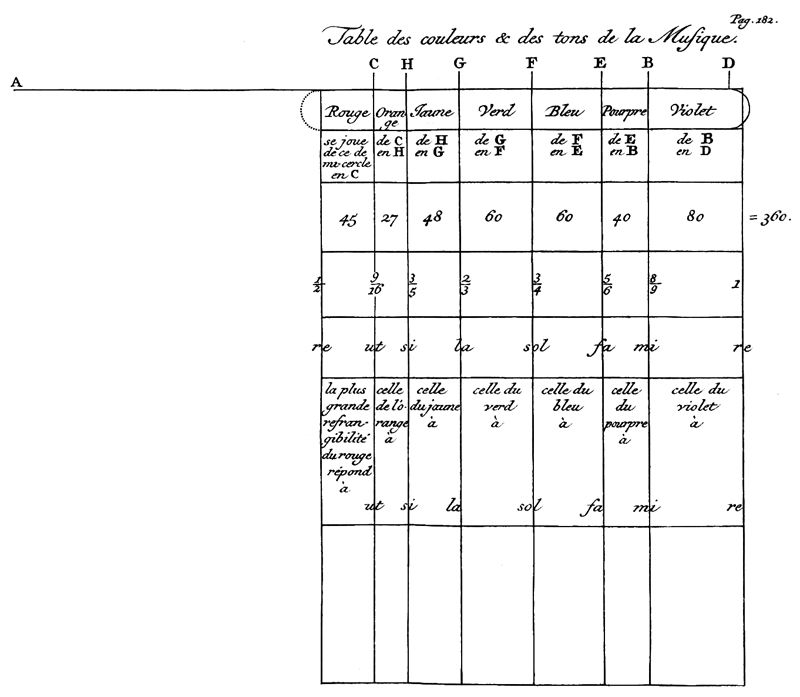 Pag. 182.
Table des couleurs & des tons de la Musique.
C H G F E B D
A
Rouge Oran Jaune Verd Bleu Pourpre Violet
ge
se joue de C de H de G de F de E de B
de ce de en H en G en F en E en B en D
mi cercle
en C
45 27 48 60 60 40 80 = 360.
1/2 9/16 3/5 2/3 3/4 5/6 8/9 1
re ut si la sol fa mi re
la plus celle celle celle du celle du celle celle du
grande de l'o du jaune verd bleu du violet
refran- range à à à pourpre à
gibilité à à
du rouge
répond
à
ut si la sol fa mi re